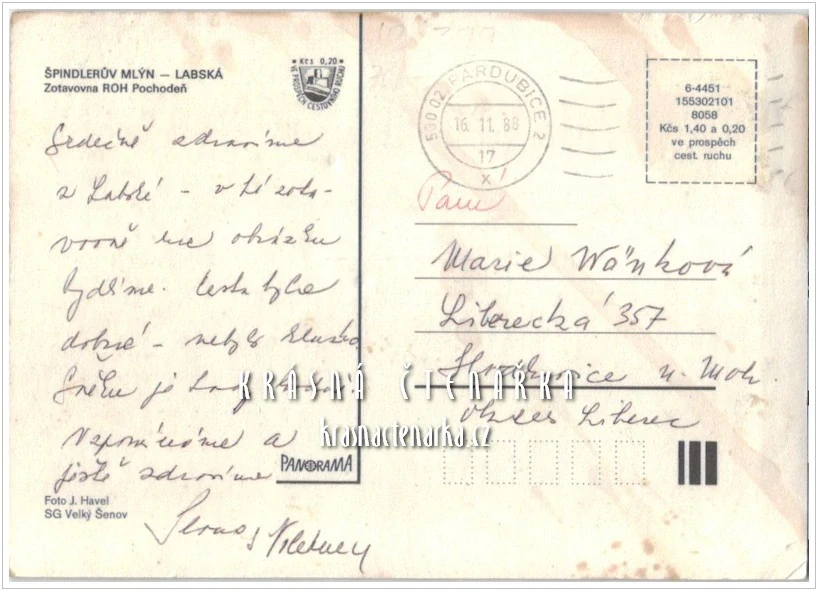 ŠPINDLERŮV MLÝN — LABSKÁ
Zotavovna ROH Pochodeň
Kčs 0,20
VE PROSPĚCH CESTOVNÍHO RUCHU
Srdečně zdravíme
z Labské - v té zota-
vovně na obrázku
bydlíme. Cesta byla
dobrá - nebylo
Sněhu je tady
Vzpomínáme a
ještě zdravíme
PANORAMA
Foto J. Havel
SG Velký Šenov
530 02 PARDUBICE 2
16. 11. 88
17
x
6-4451
155302101
8058
Kčs 1,40 a 0,20
ve prospěch
cest. ruchu
Paní
Marie Vaňková
Liberecká 357
n. Moh.
okres Liberec
KRÁSNÁ ČTENÁRKA
krasnactenarka.cz